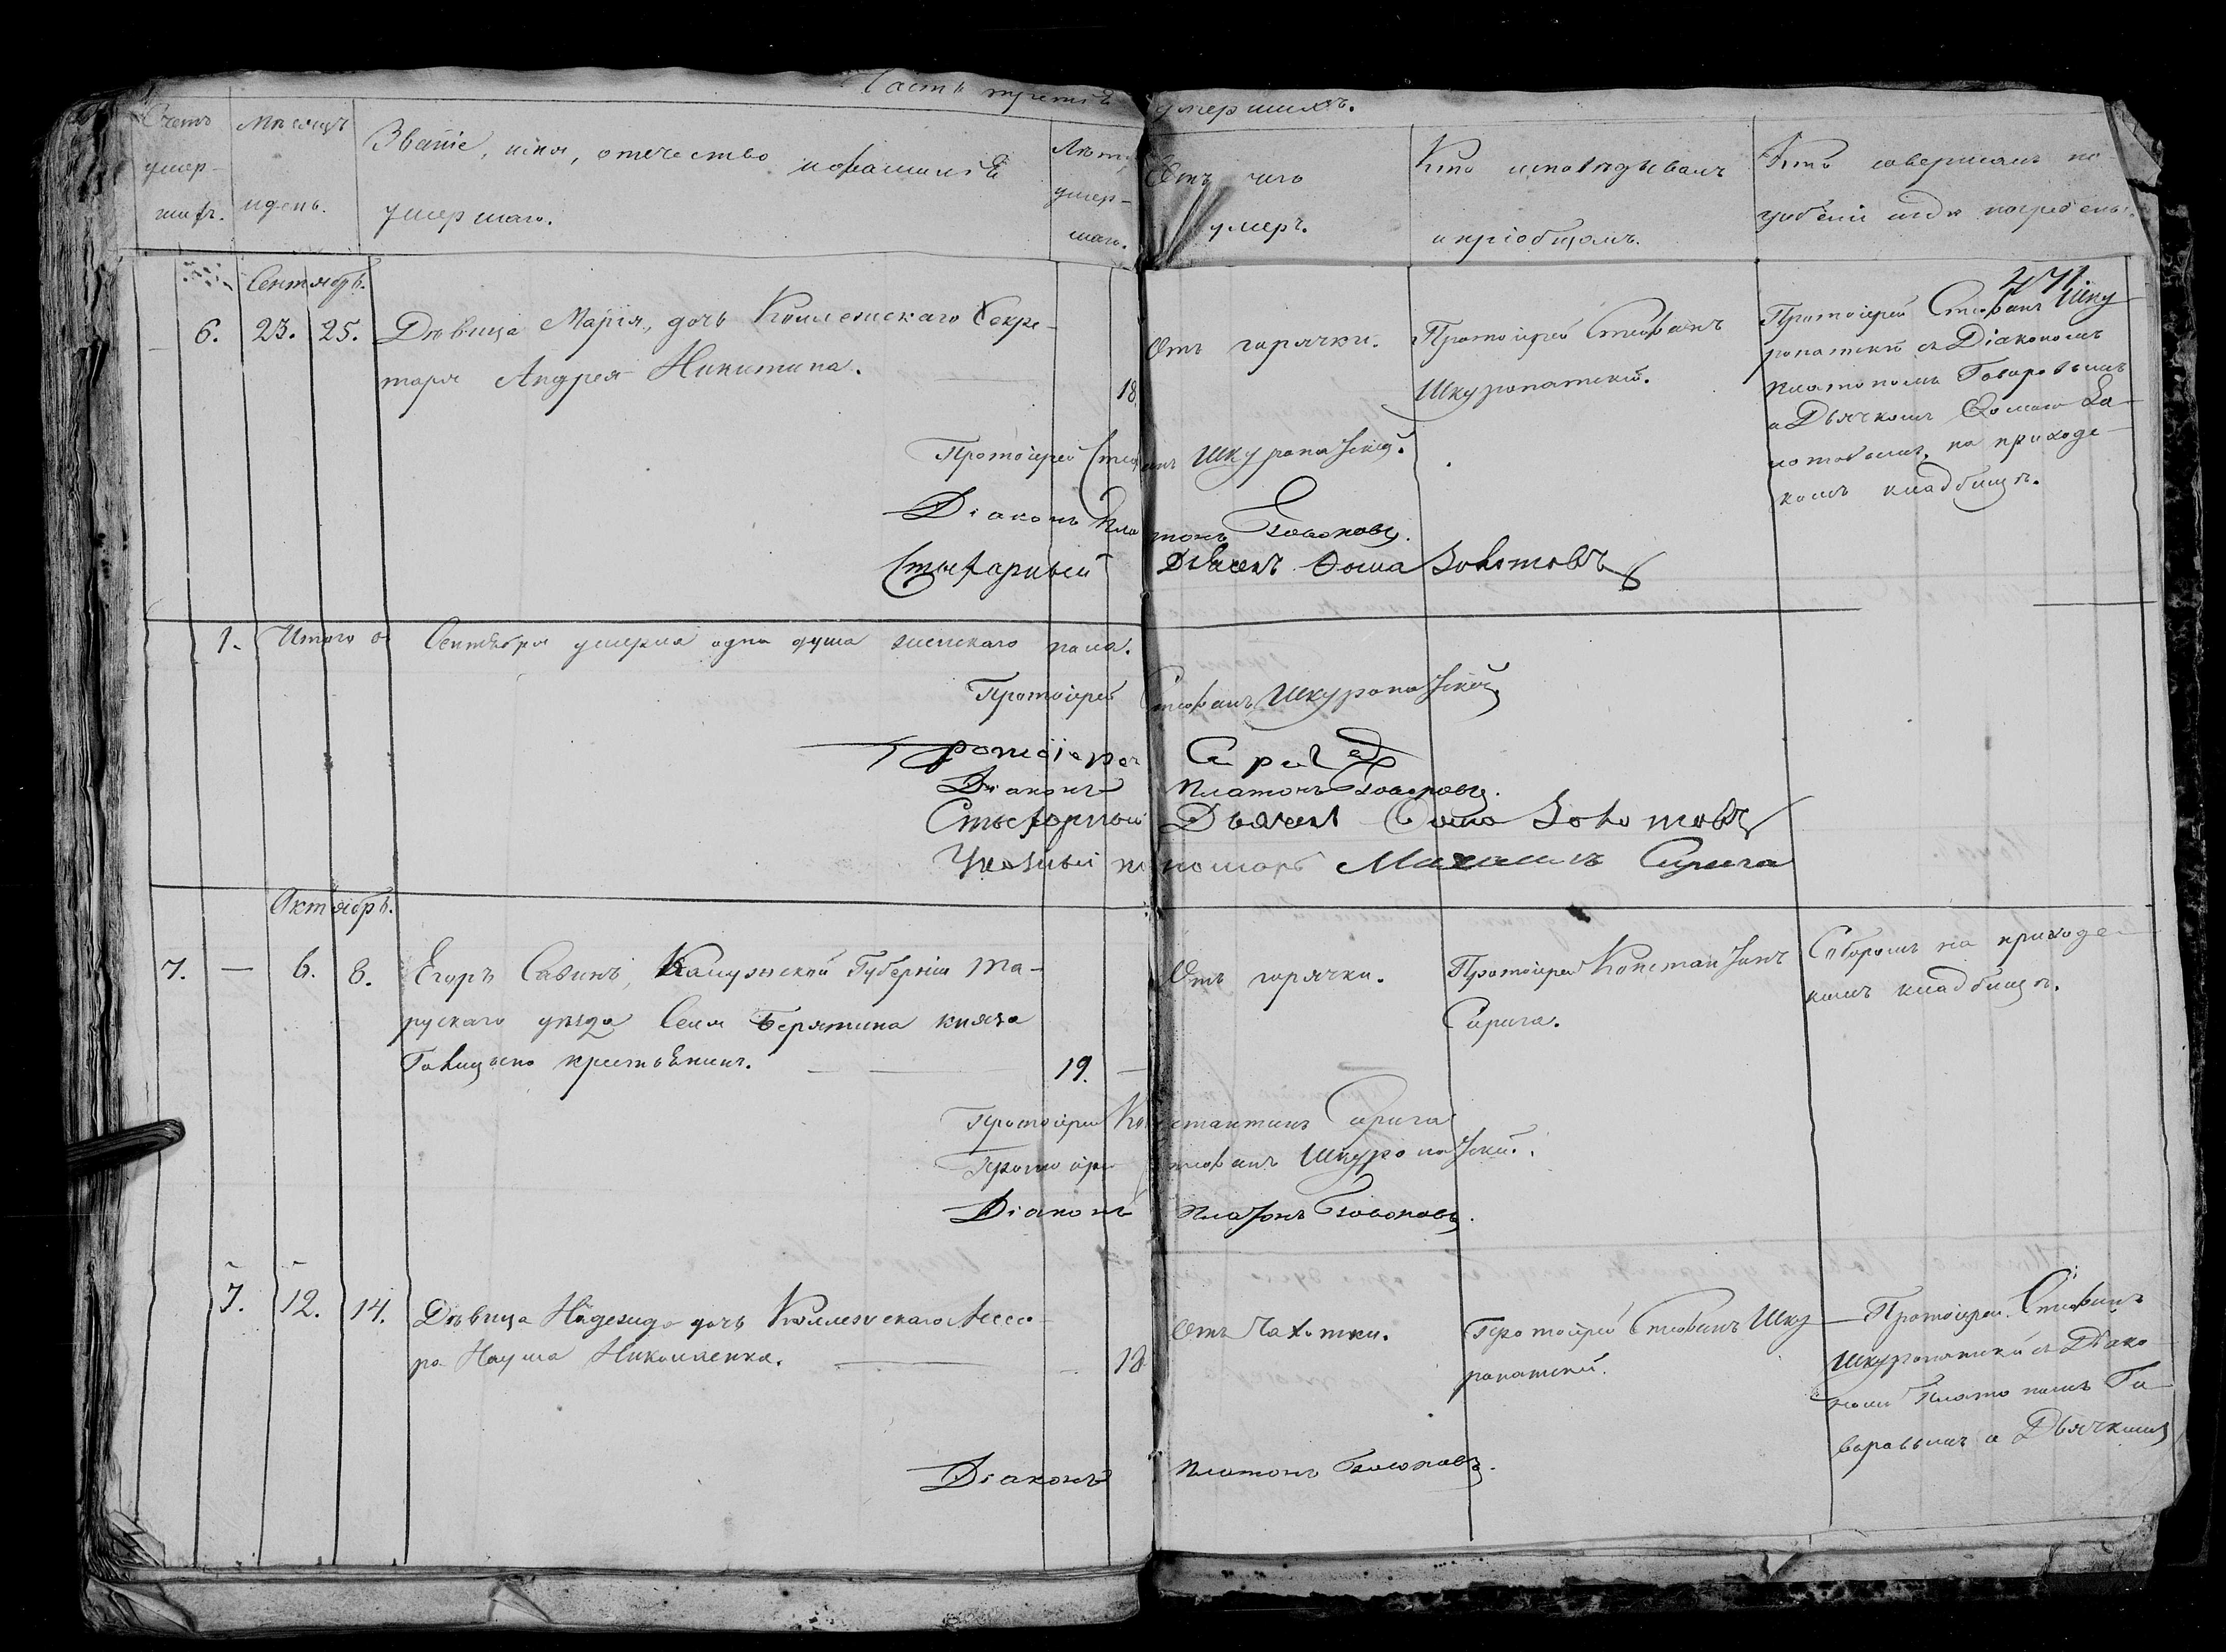 Часть третія умершихъ.
Счетъ умер-шихъ.
Мѣсяцъ и день.
Званіе, имя, отечество и фамилія умершаго.
Лѣта умер-шаго.
Отъ чего умеръ.
Кто исповѣдывалъ и пріобщалъ.
Кто совершалъ по-
гребеніе и гдѣ погребены.
471.
Сентябрь.
6. 23. 25. Дѣвица Марія, дочь Коллежскаго Секре-
таря Андрея Никитина.
18.
Отъ горячки.
Протоіерей Стефанъ
Шкуропатскій.
Протоіерей Стефанъ Шку
ропатскій съ Діакономъ
Платономъ Говоровымъ
и Дьячкомъ Ѳомою Зо-
лотовымъ, на приход-
комъ кладбищѣ.
Протоіерей Стефанъ Шкуропатскій.
Діаконъ Платонъ Говоровъ.
Стихарный Дьячекъ Ѳома Золотовъ
1. Итого въ Сентябрѣ умерла одна душа женскаго пола.
Протоіерей Стефанъ Шкуропатскій
Протоіерей
Діаконъ Платонъ Говоровъ.
Стихарный Дьячекъ Ѳома Золотовъ
Указный пономарь Михаилъ Сирига
Октябрь.
7. — 6. 8. Егоръ Савинъ, Калужской Губерніи Та-
рускаго уѣзда Села Берятина князя
Голицына крестьянинъ.
19.
Отъ горячки.
Протоіерей Константинъ
Сирига.
Соборомъ на приход-
комъ кладбищѣ.
Протоіерей Константинъ Сирига
Протоіерей Стефанъ Шкуропатскій.
Діаконъ Платонъ Говоровъ.
7. 12. 14. Дѣвица Надежда дочь Коллежскаго Ассесо-
ра Наума Николаенка.
18
Отъ Чахотки.
Протоіерей Стефанъ Шку
ропатскій.
Протоіерей Стефанъ
Шкуропатскій съ Діако-
номъ Платономъ Го-
воровымъ и Дьячкомъ
Діаконъ Платонъ Говоровъ.